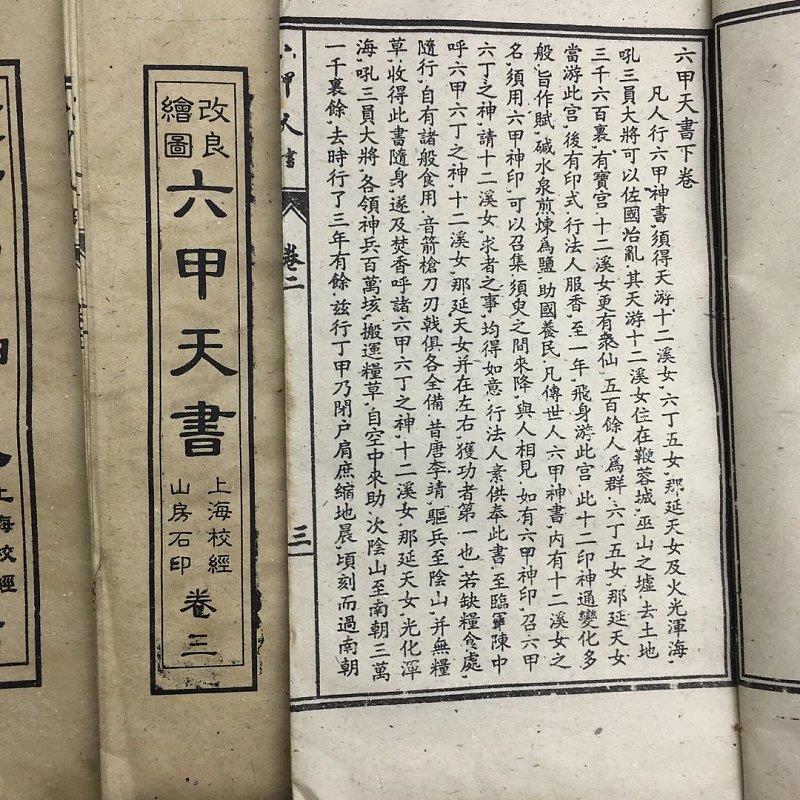 六甲天書下卷
凡人行六甲神書，須得天游十二溪女，六丁五女，那延天女及火光渾海，
吼三員大將可以佐國治亂，其天游十二溪女住在鞭蓉城，巫山之墟，去土地
三千六百裏，有寶宮，十二溪女更有衆仙，五百餘人爲群，六丁五女，那延天女
當游此宮，後有印式，行法人服香，至一年，飛身游此宮此十二印神通變化多
般，旨作賦，碱水泉煎煉爲鹽，助國養民，凡傳世人六甲神書，內有十二溪女之
名，須用六甲神印，可以召集，須臾之間來降，與人相見，如有六甲神印，召六甲
六丁之神，請十二溪女，求者之事，均得如意，行法人素供奉此書，至臨軍陳中
呼六甲六丁之神，十二溪女，那延天女并在左右，獲功者第一也，若缺糧食處，
隨行，自有諸般食用，音箭槍刀刃戟俱各全備，昔唐李靖，驅兵至陰山，并無糧
草，收得此書隨身，遂及焚香呼諸六甲六丁之神，十二溪女，那延天女，光化渾
海，吼三員大將，各領神兵百萬垓，搬運糧草，自空中來助，次陰山至南朝三萬
一千裏餘，去時行了三年有餘，兹行丁甲乃閉户肩庶縮地晨，頃刻而過南朝
六甲天書 卷二 三
改良
繪圖
六甲天書
上海校經
山房石印
卷三
上海校經